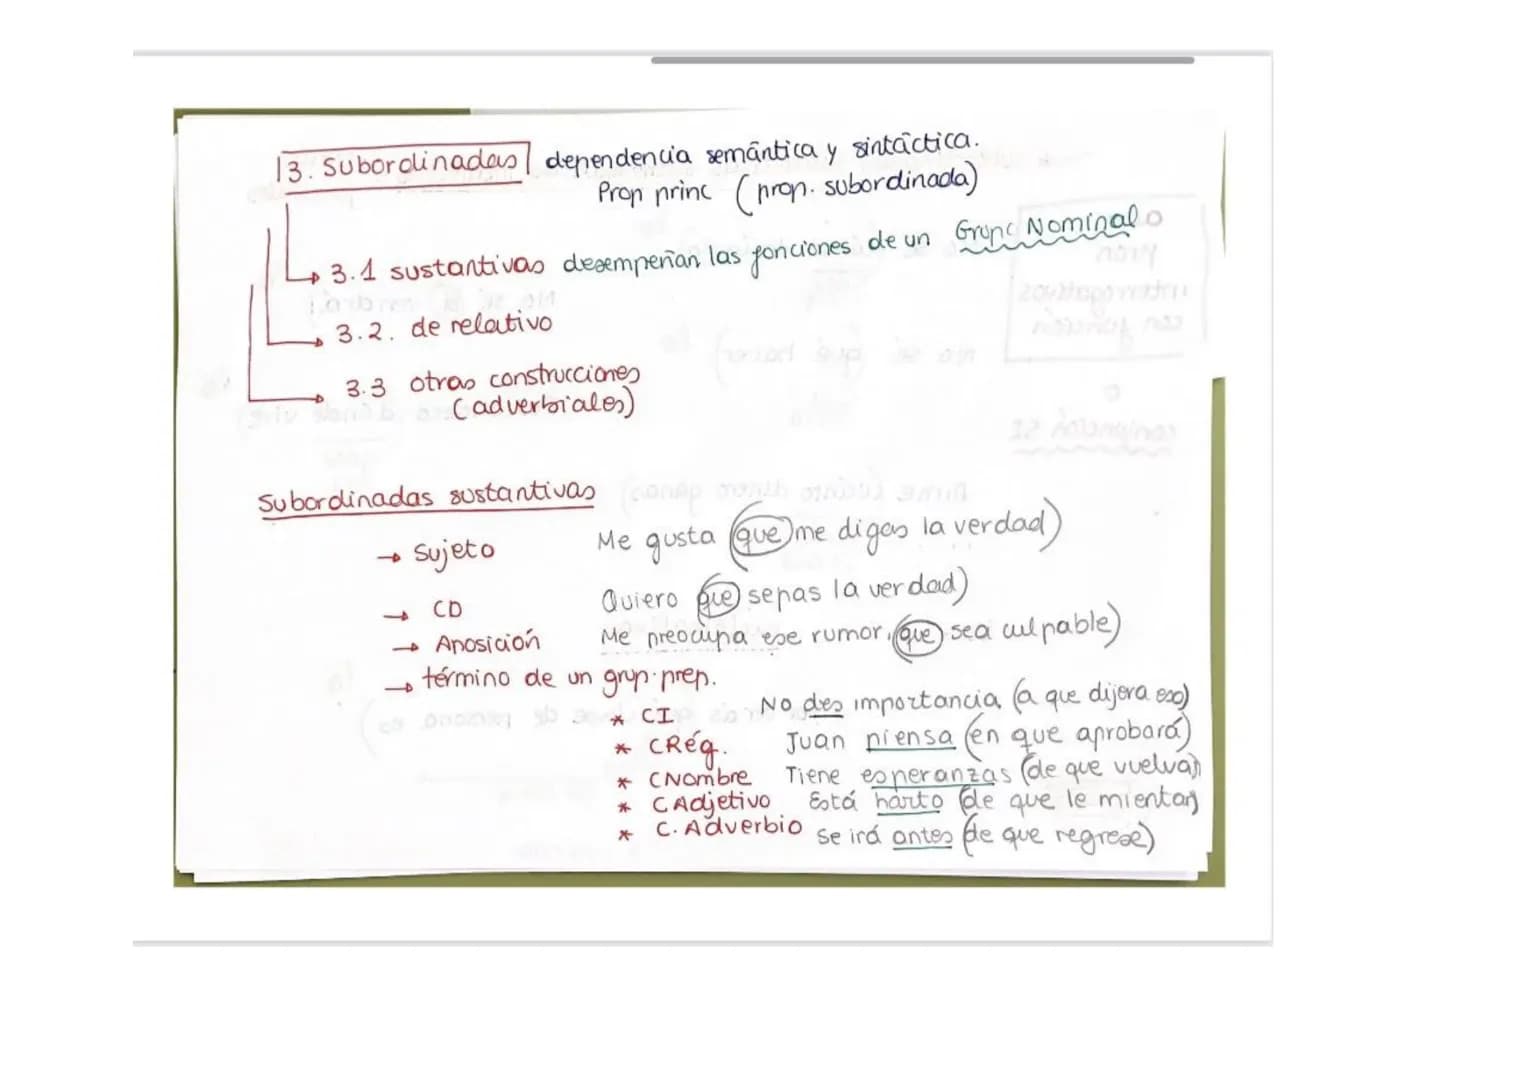 3. Subordinadas dependencia semántica y sintáctica.
Prop princ (prop. subordinada)
3.1 sustantivas desempeñan las funciones de un Grupo Nominal
3.2. de relativo
3.3 otras construcciones
(adverbiales)
Subordinadas sustantivas
→ Sujeto Me gusta (que me digas la verdad)
→ CD Quiero que sepas la verdad)
→ Aposición Me preocupa ese rumor, (que sea culpable)
→ término de un grup. prep.
* CI No des importancia (a que dijera eso)
* CRég. Juan piensa (en que aprobará)
* CNombre Tiene esperanzas (de que vuelva)
* CAdjetivo Está harto (de que le mientan)
* C. Adverbio Se irá antes (de que regrese)